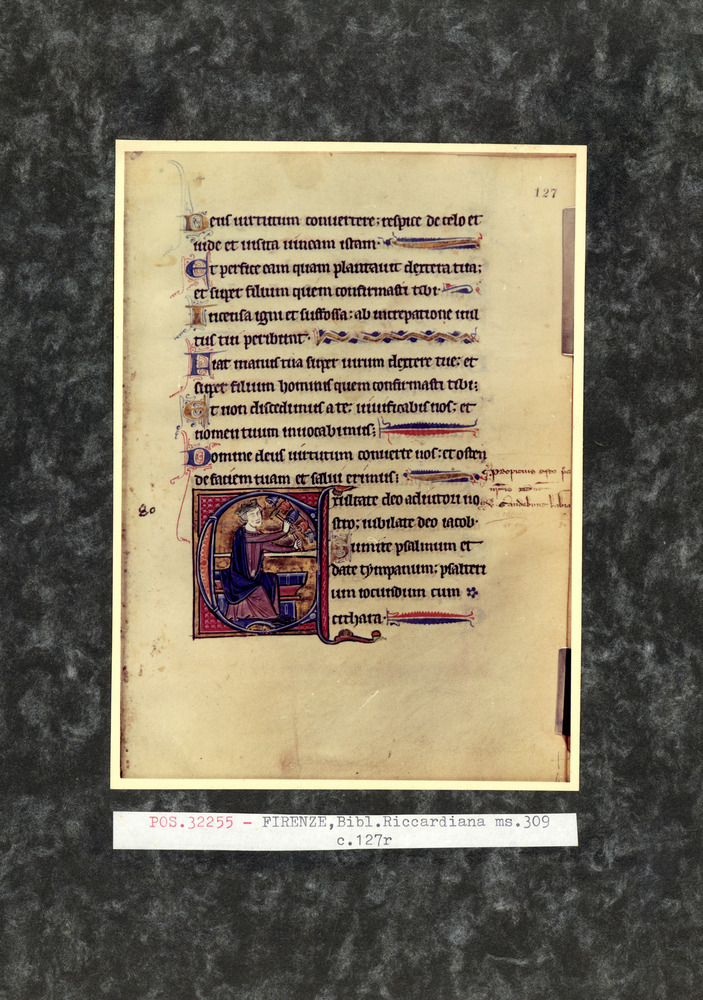 127
Deus uirtutum conuertere; respice de celo et
uide et uisita uineam istam.
Et perfice eam quam plantauit dextera tua;
et super filium quem confirmasti tibi.
Incensa igni et suffossa; ab increpatione uul
tus tui peribunt.
Fiat manus tua super uirum dextere tue; et
super filium hominis quem confirmasti tibi;
Et non discedimus a te; uiuificabis nos; et
nomen tuum inuocabimus;
Domine deus uirtutum conuerte nos; et osten
de faciem tuam et salui erimus;
80
Exultate deo adiutori no
stro; iubilate deo iacob.
Sumite psalmum et
date tympanum; psalteri
um iocundum cum
cithara.
POS.32255 - FIRENZE,Bibl.Riccardiana ms.309
c.127r